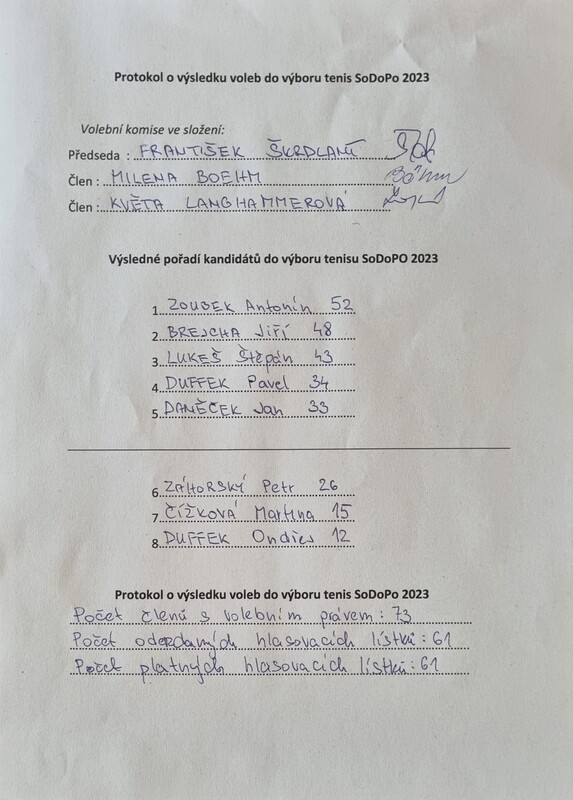 Protokol o výsledku voleb do výboru tenis SoDoPo 2023
Volební komise ve složení:
Předseda : FRANTIŠEK ŠKRDLANT
Člen : MILENA BOEHM
Člen : KVĚTA LANGHAMMEROVÁ
Výsledné pořadí kandidátů do výboru tenisu SoDoPO 2023
1. ZOUBEK Antonín 52
2. BREJCHA Jiří 48
3. LUKEŠ Štěpán 43
4. DUFFEK Pavel 34
5. DANĚČEK Jan 33
6. ZÁHORSKÝ Petr 26
7. ČÍŽKOVÁ Martina 15
8. DUFFEK Ondřej 12
Protokol o výsledku voleb do výboru tenis SoDoPo 2023
Počet členů s volebním právem : 73
Počet oderdaných hlasovacích lístků : 61
Počet platných hlasovacích lístků : 61